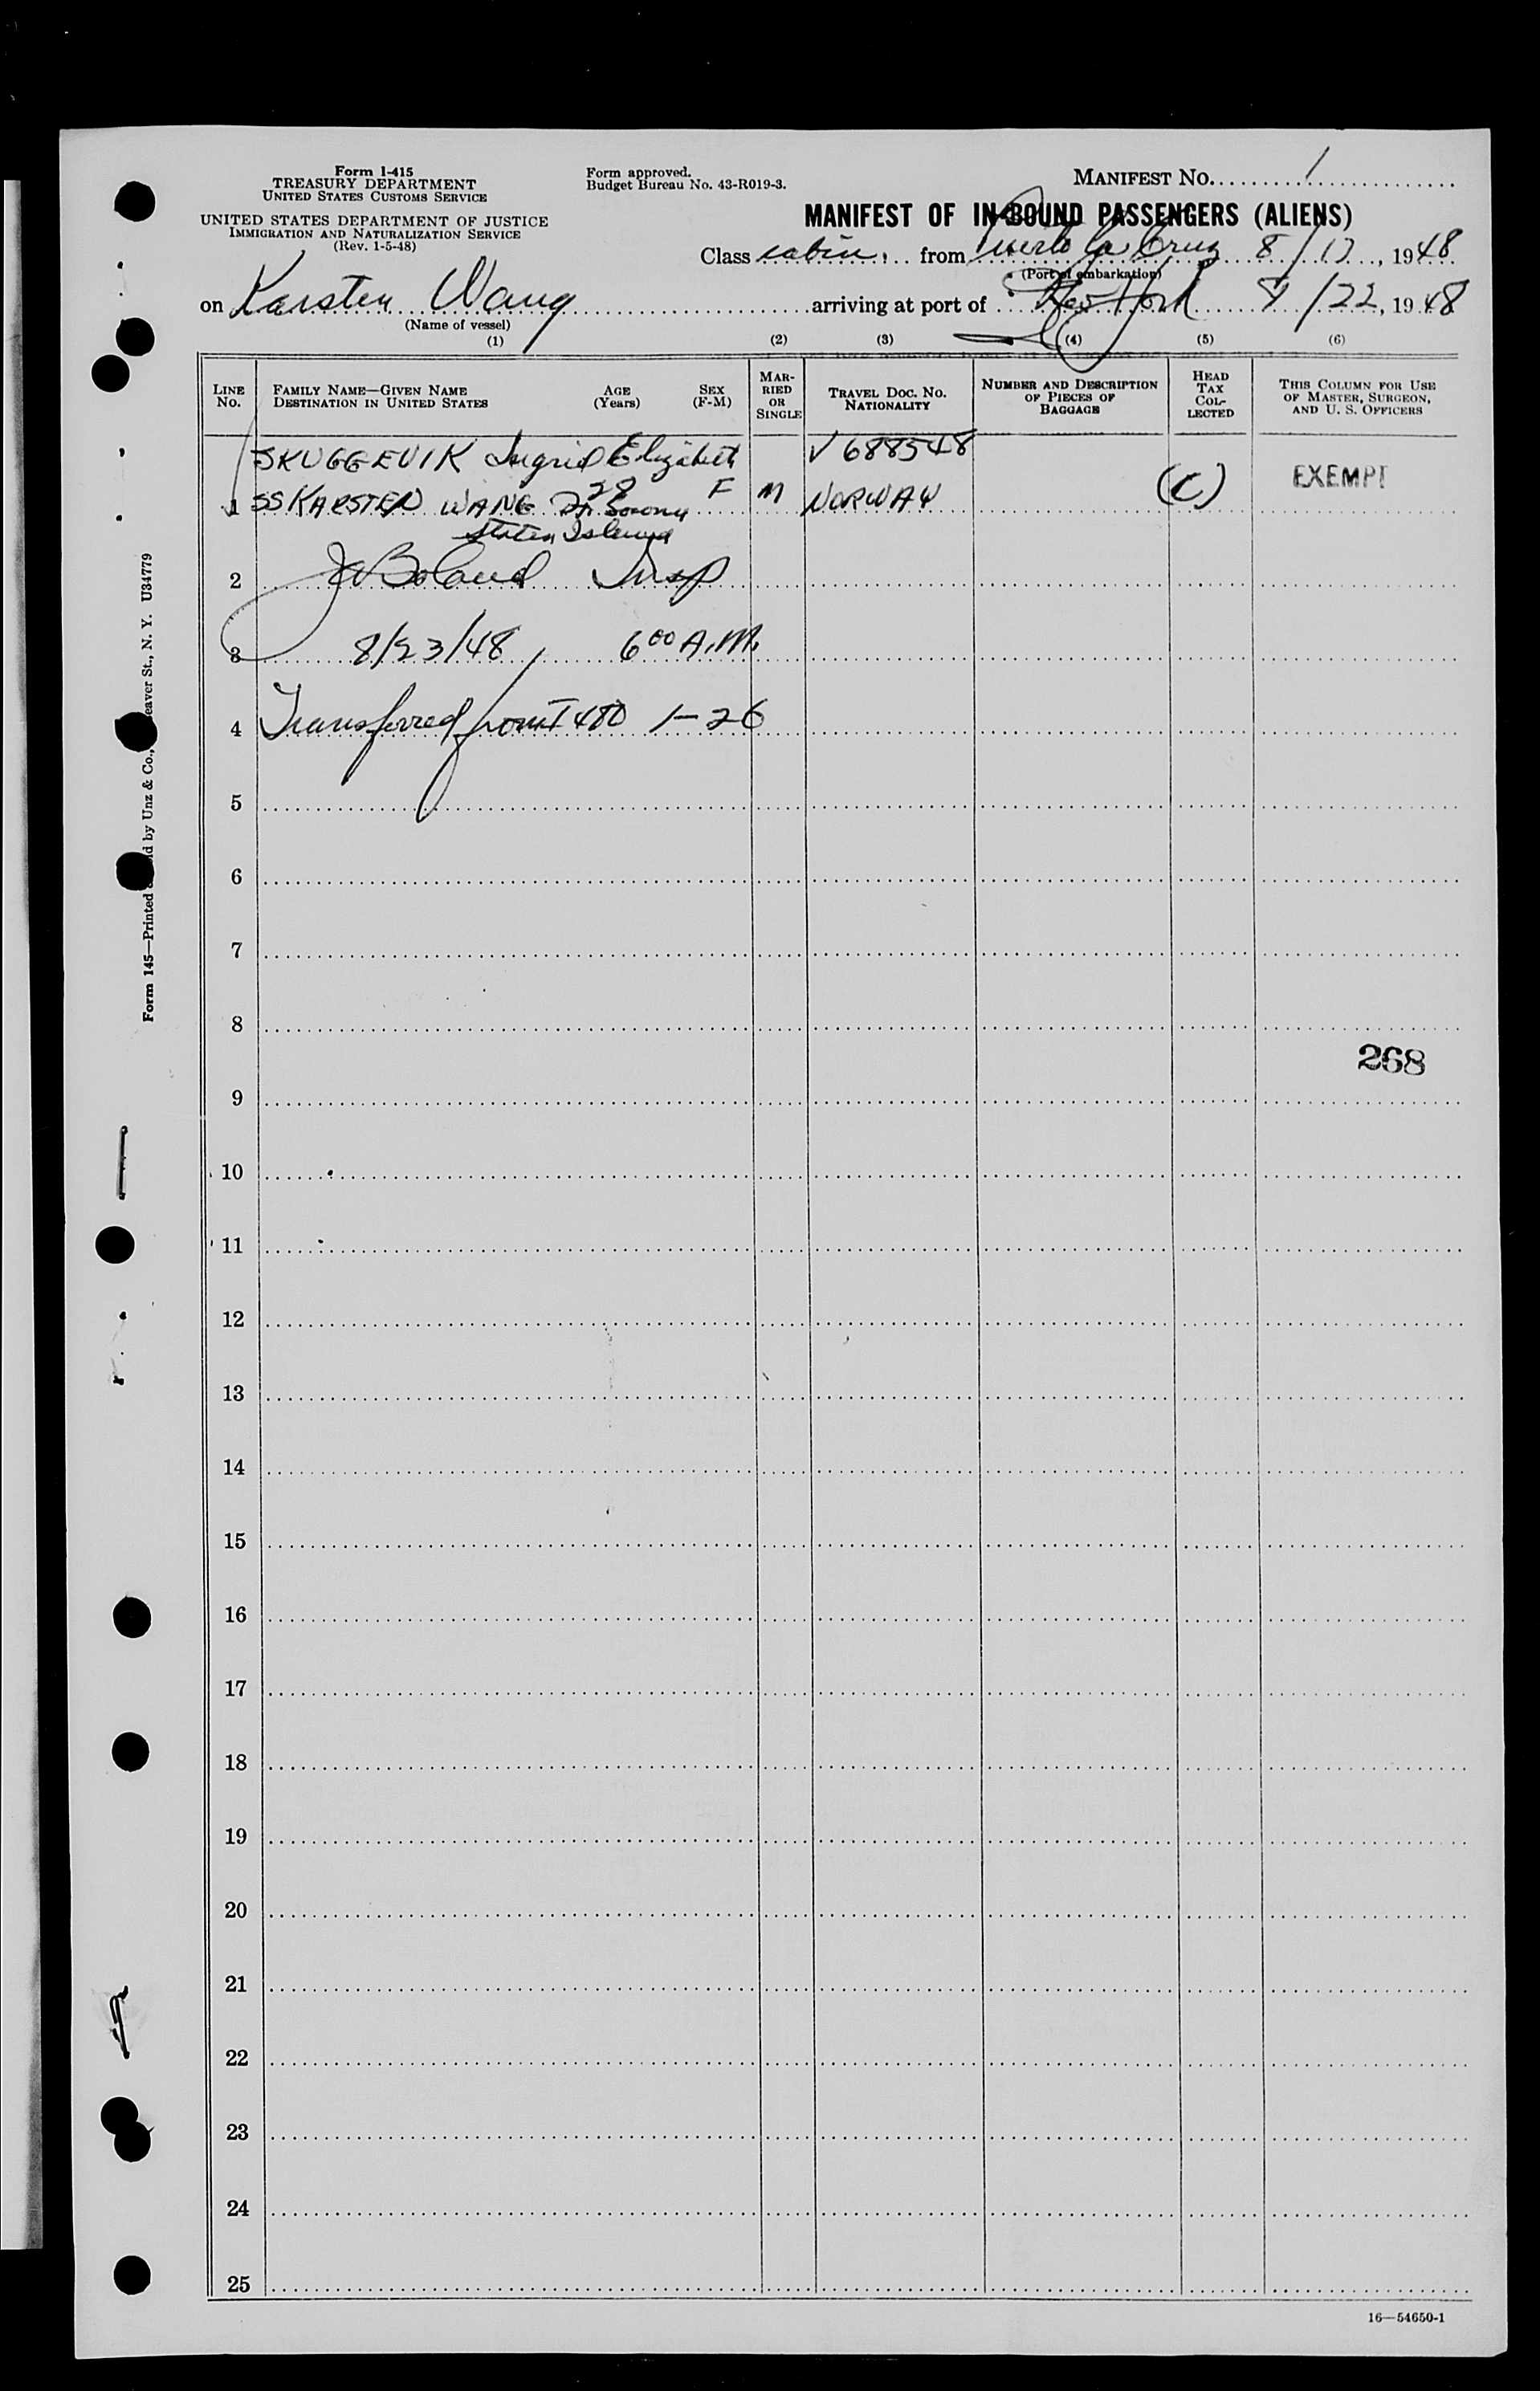 Form I-415
TREASURY DEPARTMENT
UNITED STATES CUSTOMS SERVICE
UNITED STATES DEPARTMENT OF JUSTICE
IMMIGRATION AND NATURALIZATION SERVICE
(Rev. 1-5-48)
Form approved.
Budget Bureau No. 43-R019-3.
MANIFEST NO. 1
MANIFEST OF IN-BOUND PASSENGERS (ALIENS)
Class cabin from Puerto la Cruz 8/17, 1948
(Port of embarkation)
on Karsten Wang arriving at port of New York 8/22, 1948
(Name of vessel)
(1) (2) (3) (4) (5) (6)
LINE NO.
FAMILY NAME—GIVEN NAME
DESTINATION IN UNITED STATES
AGE (Years)
SEX (F-M)
MARRIED OR SINGLE
TRAVEL DOC. NO.
NATIONALITY
NUMBER AND DESCRIPTION OF PIECES OF BAGGAGE
HEAD TAX COLLECTED
THIS COLUMN FOR USE OF MASTER, SURGEON, AND U. S. OFFICERS
SKUGGEVIK Ingrid Elizabeth V 688548
1 SS KARSTEN WANG 28 F M NORWAY (C) EXEMPT
Staten Island
2 Boland Insp
3 8/23/48 6 00 A.M.
4 Transferred from I 480 1-26
5
6
7
8
268
9
10
11
12
13
14
15
16
17
18
19
20
21
22
23
24
25
16—54650-1
Form 145—Printed by Unz & Co., eaver St., N. Y. U34779